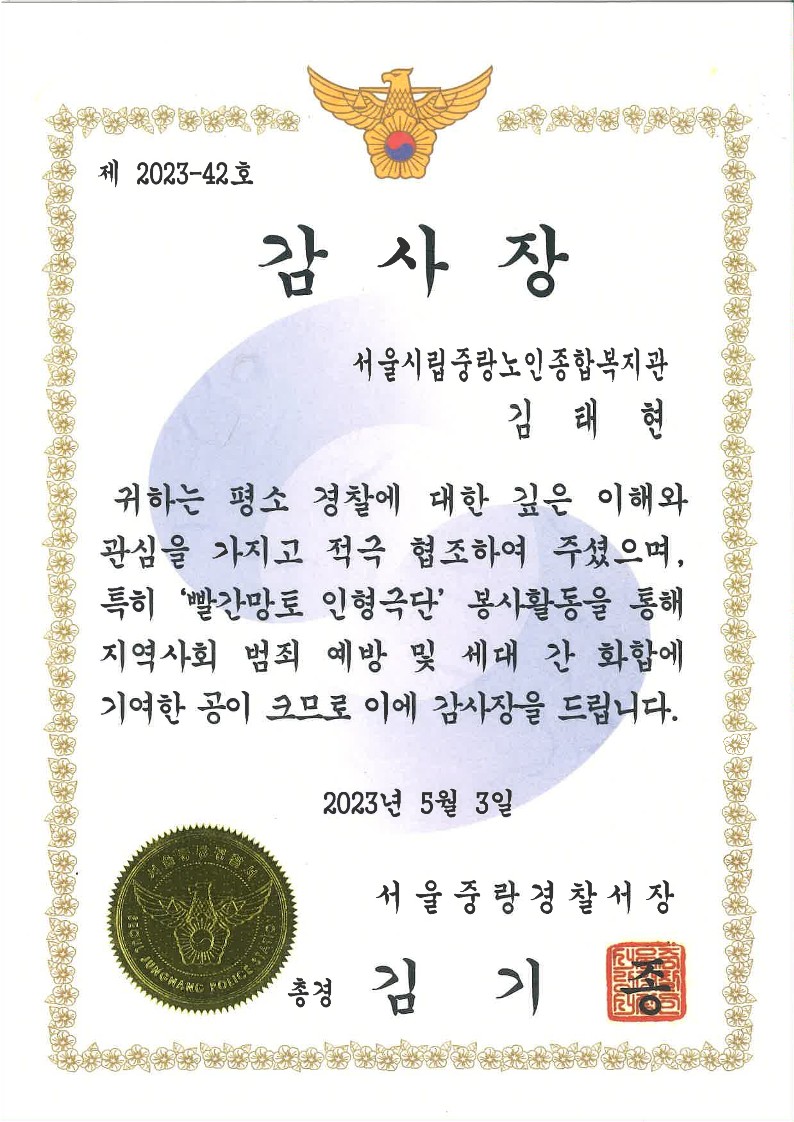 제 2023-42호
감 사 장
서울시립중랑노인종합복지관
김 태 현
귀하는 평소 경찰에 대한 깊은 이해와
관심을 가지고 적극 협조하여 주셨으며,
특히 '빨간망토 인형극단' 봉사활동을 통해
지역사회 범죄 예방 및 세대 간 화합에
기여한 공이 크므로 이에 감사장을 드립니다.
2023년 5월 3일
서울중랑경찰서
SEOUL JUNGNANG POLICE STATION
서울중랑경찰서장
총경 김 기 종